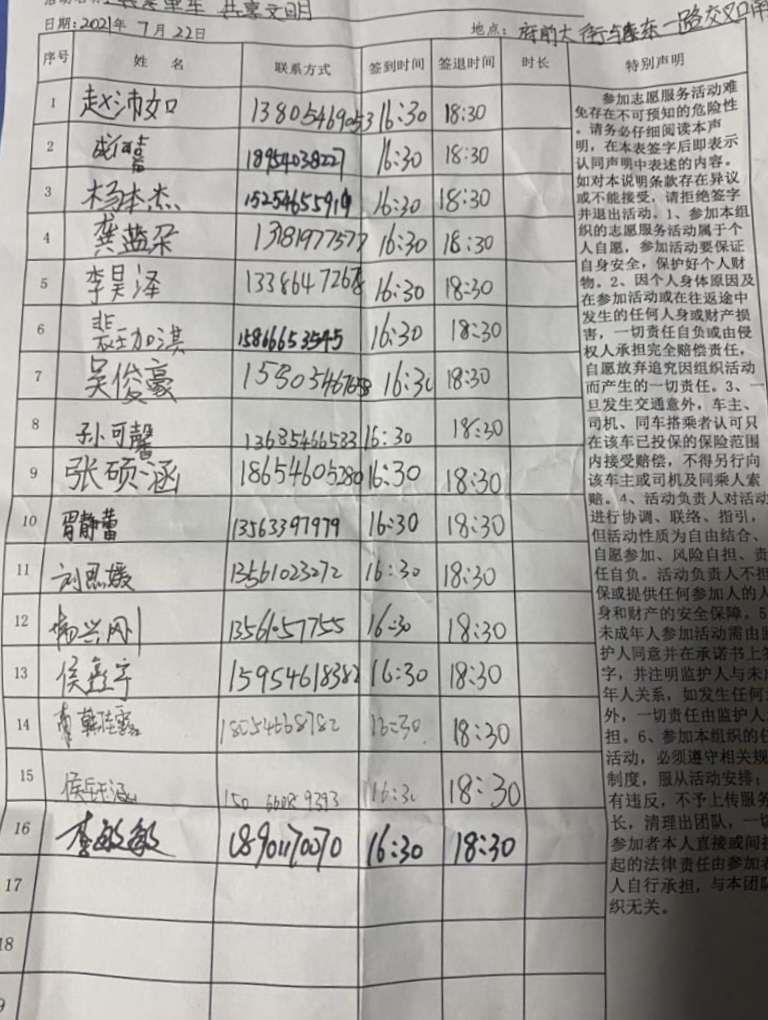 共享单车 共享文明
日期:2021年 7月22日
地点: 府前大街与
序号 姓 名 联系方式 签到时间 签退时间 时长 特别声明
1 赵沛如 13805469053 16:30 18:30
2 18954038227 16:30 18:30
3 杨本杰 16:30 18:30
4 龚蓝朵 16:30 18:30
5 李昊泽 16:30 18:30
6 15866653545 16:30 18:30
7 吴俊豪 16:30 18:30
8 孙可馨 16:30 18:30
9 张硕涵 18654605280 16:30 18:30
10 胥静蕾 13563397979 16:30 18:30
11 刘思媛 13561023272 16:30 18:30
12 13561057755 16:30 18:30
13 15954618382 16:30 18:30
14 16:30 18:30
15 16:30 18:30
16 李敏敏 16:30 18:30
17
18
参加志愿服务活动难
免存在不可预知的危险性
。请务必仔细阅读本声
明，在本表签字后即表示
认同声明中表述的内容。
如对本说明条款存在异议
或不能接受，请拒绝签字
并退出活动。1、参加本组
织的志愿服务活动属于个
人自愿，参加活动要保证
自身安全，保护好个人财
物。2、因个人身体原因及
在参加活动或在往返途中
发生的任何人身或财产损
害，一切责任自负或由侵
权人承担完全赔偿责任，
自愿放弃追究因组织活动
而产生的一切责任。3、一
旦发生交通意外，车主、
司机、同车搭乘者认可只
在该车已投保的保险范围
内接受赔偿，不得另行向
该车主或司机及同乘人索
赔。4、活动负责人对活动
进行协调、联络、指引，
但活动性质为自由结合、
自愿参加、风险自担、责
任自负。活动负责人不担
保或提供任何参加人的人
身和财产的安全保障。5
未成年人参加活动需由监
护人同意并在承诺书上签
字，并注明监护人与未成
年人关系，如发生任何意
外，一切责任由监护人承
担。6、参加本组织的任
活动，必须遵守相关规
制度，服从活动安排；
有违反，不予上传服务
长，清理出团队，一切
参加者本人直接或间接
起的法律责任由参加者
人自行承担，与本团队
织无关。